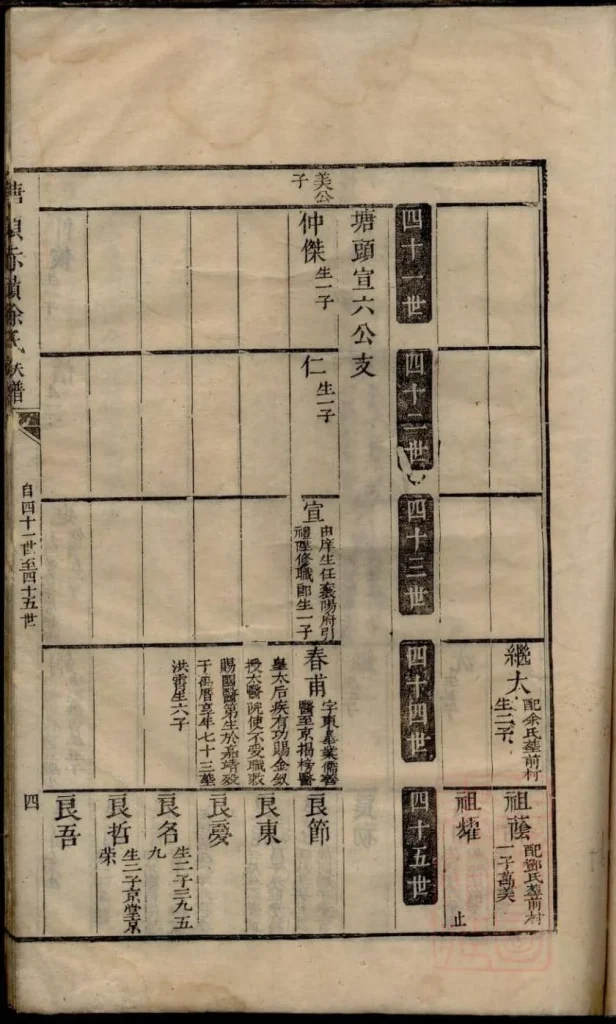 繼大
配余氏塟前村
生二子
祖蔭
配鄧氏塟前村
一子萬美
祖燿
止
四十一世
四十二世
四十三世
四十四世
四十五世
塘頭宣六公支
美公
子
仲傑
生一子
仁
生一子
宣
由庠生任襄陽府引
禮陞修職郎生一子
春甫
字東臯業儒善
醫至京揭榜醫
皇太后疾有功賜金釵
授太醫院使不受職敕
賜國醫第生於嘉靖歿
于萬曆享年七十三塟
洪霄生六子
良節
良東
良憂
良名
生二子三九五
九
良哲
生二子京堂京
荣
良吾
徐氏族譜
自四十一世至四十五世
四